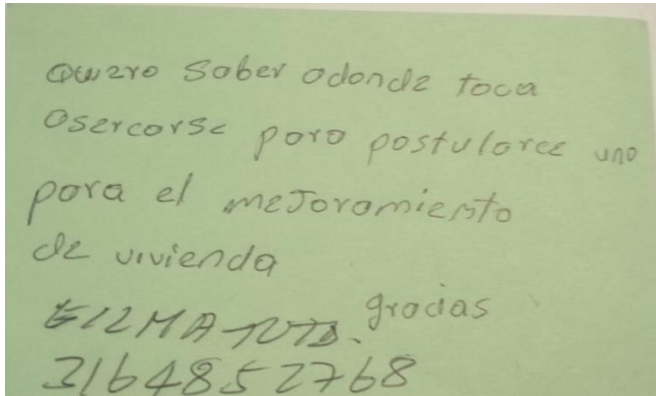 Quiero saber adonde toca
asercarse para postularce uno
para el mejoramiento
de vivienda
gracias
3164852768